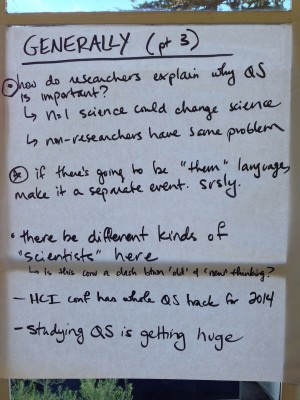 GENERALLY (pt 3)
• how do researchers explain why QS
is important?
↳ n=1 science could change science
↳ non-researchers have same problem
if there's going to be "them" language,
make it a separate event. srsly.
• there be different kinds of
"scientists" here
↳ is this conv a clash btwn 'old' & 'new' thinking?
- HCI conf has whole QS track for 2014
- studying QS is getting huge